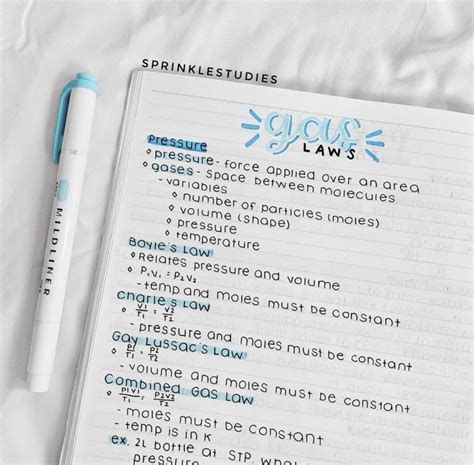 SPRINKLESTUDIES
gas
LAWS
Pressure
pressure - force applied over an area
gases - space between molecules
- variables
number of particles (moles)
volume (shape)
pressure
temperature
Boyle's Law
Relates pressure and volume
P1V1 = P2V2
- temp and moles must be constant
Charle's Law
V1/T1 = V2/T2
- pressure and moles must be constant
Gay Lussac's Law
P1/T1 = P2/T2
- volume and moles must be constant
Combined Gas Law
P1V1/T1 = P2V2/T2
- moles must be constant
- temp is in K
ex. 2L bottle at STP.
pressure
MILDLINER